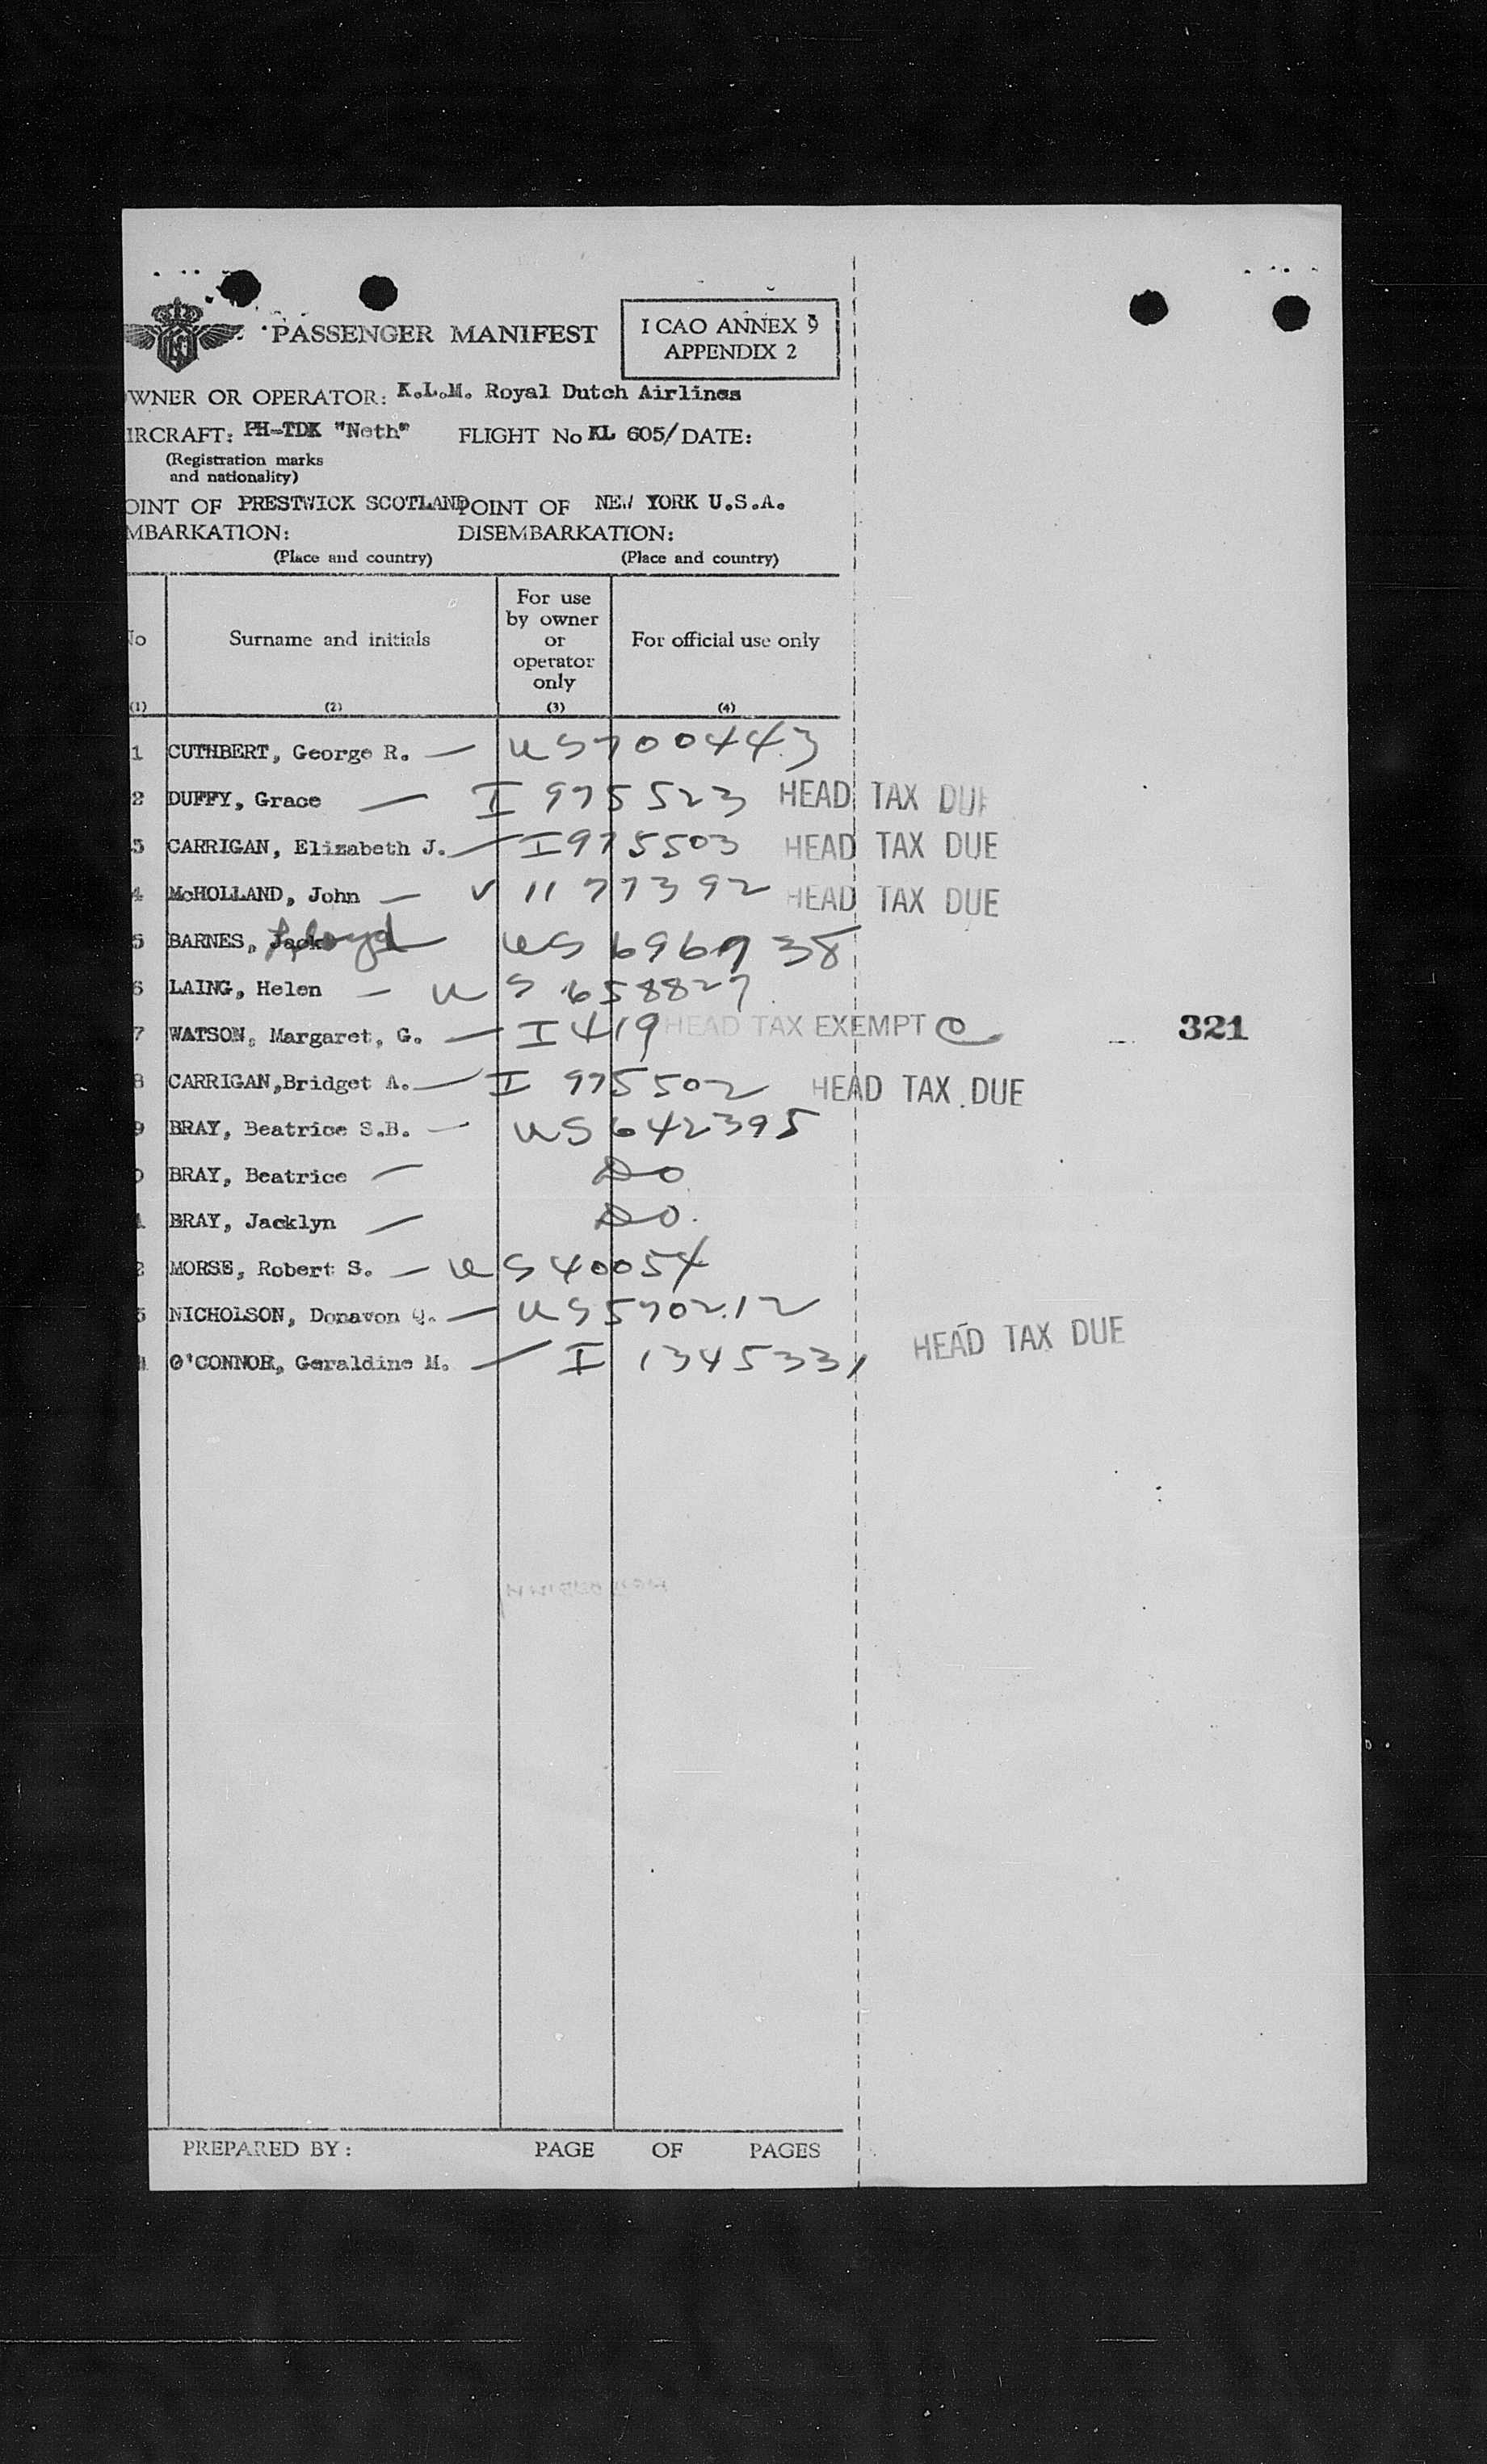 PASSENGER MANIFEST
I CAO ANNEX 9
APPENDIX 2
WNER OR OPERATOR: K.L.M. Royal Dutch Airlines
IRCRAFT: PH-TDK "Neth" FLIGHT No KL 605/ DATE:
(Registration marks
and nationality)
OINT OF PRESTWICK SCOTLAND POINT OF NEW YORK U.S.A.
MBARKATION: DISEMBARKATION:
(Place and country) (Place and country)
No Surname and initials For use by owner or operator only For official use only
(1) (2) (3) (4)
1 CUTHBERT, George R. — US 700443
2 DUFFY, Grace — I 975523 HEAD TAX DUE
3 CARRIGAN, Elizabeth J. — I 975503 HEAD TAX DUE
4 McHOLLAND, John — V 1177392 HEAD TAX DUE
5 BARNES, Jack Lloyd US 696738
6 LAING, Helen — US 658827
7 WATSON, Margaret, G. — I 419 HEAD TAX EXEMPT C 321
8 CARRIGAN, Bridget A. — I 975502 HEAD TAX DUE
9 BRAY, Beatrice S.B. — US 642395
0 BRAY, Beatrice — Do
1 BRAY, Jacklyn — Do.
2 MORSE, Robert S. — US 40054
3 NICHOLSON, Donavon Q. — US 570212
4 O'CONNOR, Geraldine M. — I 1345331 HEAD TAX DUE
PREPARED BY: PAGE OF PAGES